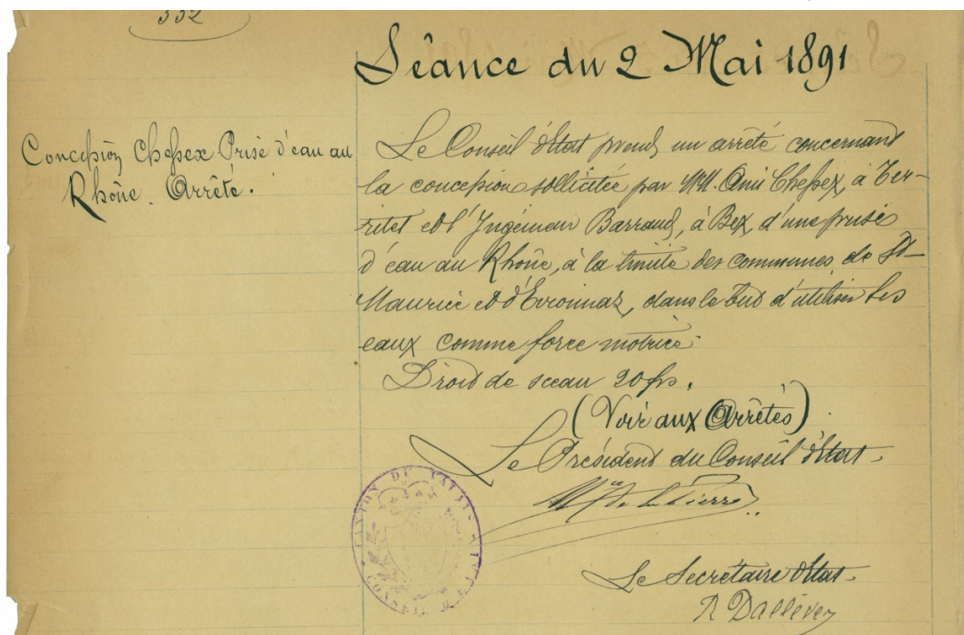 332
Séance du 2 Mai 1891
Concession Chessex Prise d'eau au
Rhône. Arrêté.
Le Conseil d'Etat prend un arrêté concernant
la concession sollicitée par MM. Ami Chessex, à Ter-
ritet et l'Ingénieur Barraud, à Bex, d'une prise
d'eau au Rhône, à la limite des communes de St-
Maurice et d'Evionnaz, dans le but d'utiliser les
eaux comme force motrice.
Droit de sceau 20 frs.
(Voir aux Arrêtés)
Le Président du Conseil d'Etat
de la Pierre
CANTON DU VALAIS
CONSEIL D'ETAT
Le Secrétaire d'Etat
R Dallèves